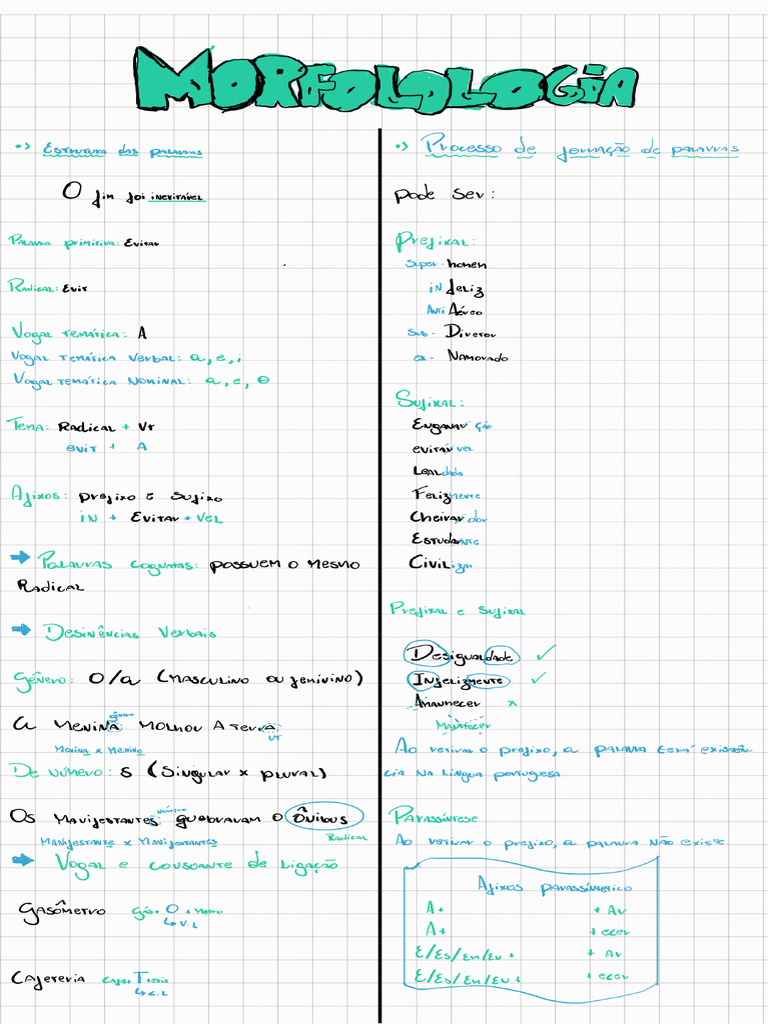 MORFOLOLOGIA
•> Estrutura das palavras
O fim foi inevitável
Palavra primitiva: Evitar
Radical: Evit
Vogal temática: A
Vogal temática verbal: a, e, i
Vogal temática nominal: a, e, o
Tema: Radical + VT
evit + A
Afixos: prefixo e sufixo
in + Evitar + vel
➡ Palavras cognatas: possuem o mesmo
Radical
➡ Desinências verbais
Gênero: o/a (masculino ou feminino)
gênero
A menina molhou a terra
VT
Menina x menino
De número: s (singular x plural)
número
Os manifestantes quebraram o ônibus
Radical
Manifestante x Manifestantes
➡ Vogal e consoante de ligação
Gasômetro gás + O + metro
↳ V.L
Cafeteria café + T + eria
↳ C.L
•> Processo de formação de palavras
pode ser:
Prefixal:
super-homem
infeliz
AntiAéreo
sub-Diretor
ex-Namorado
Sufixal:
Enganação
evitável
Lealdade
Felizmente
Cheirador
Estudante
Civilizar
Prefixal e Sufixal
Desigualdade ✓
Infelizmente ✓
Amanhecer x
Manhecer
Ao retirar o prefixo, a palavra terá existên-
cia na língua portuguesa
Parassíntese
Ao retirar o prefixo, a palavra não existe
Afixos parassintético
A+ + Ar
A+ + ecer
E/Es/En/Em + + Ar
E/Es/En/Em + + ecer